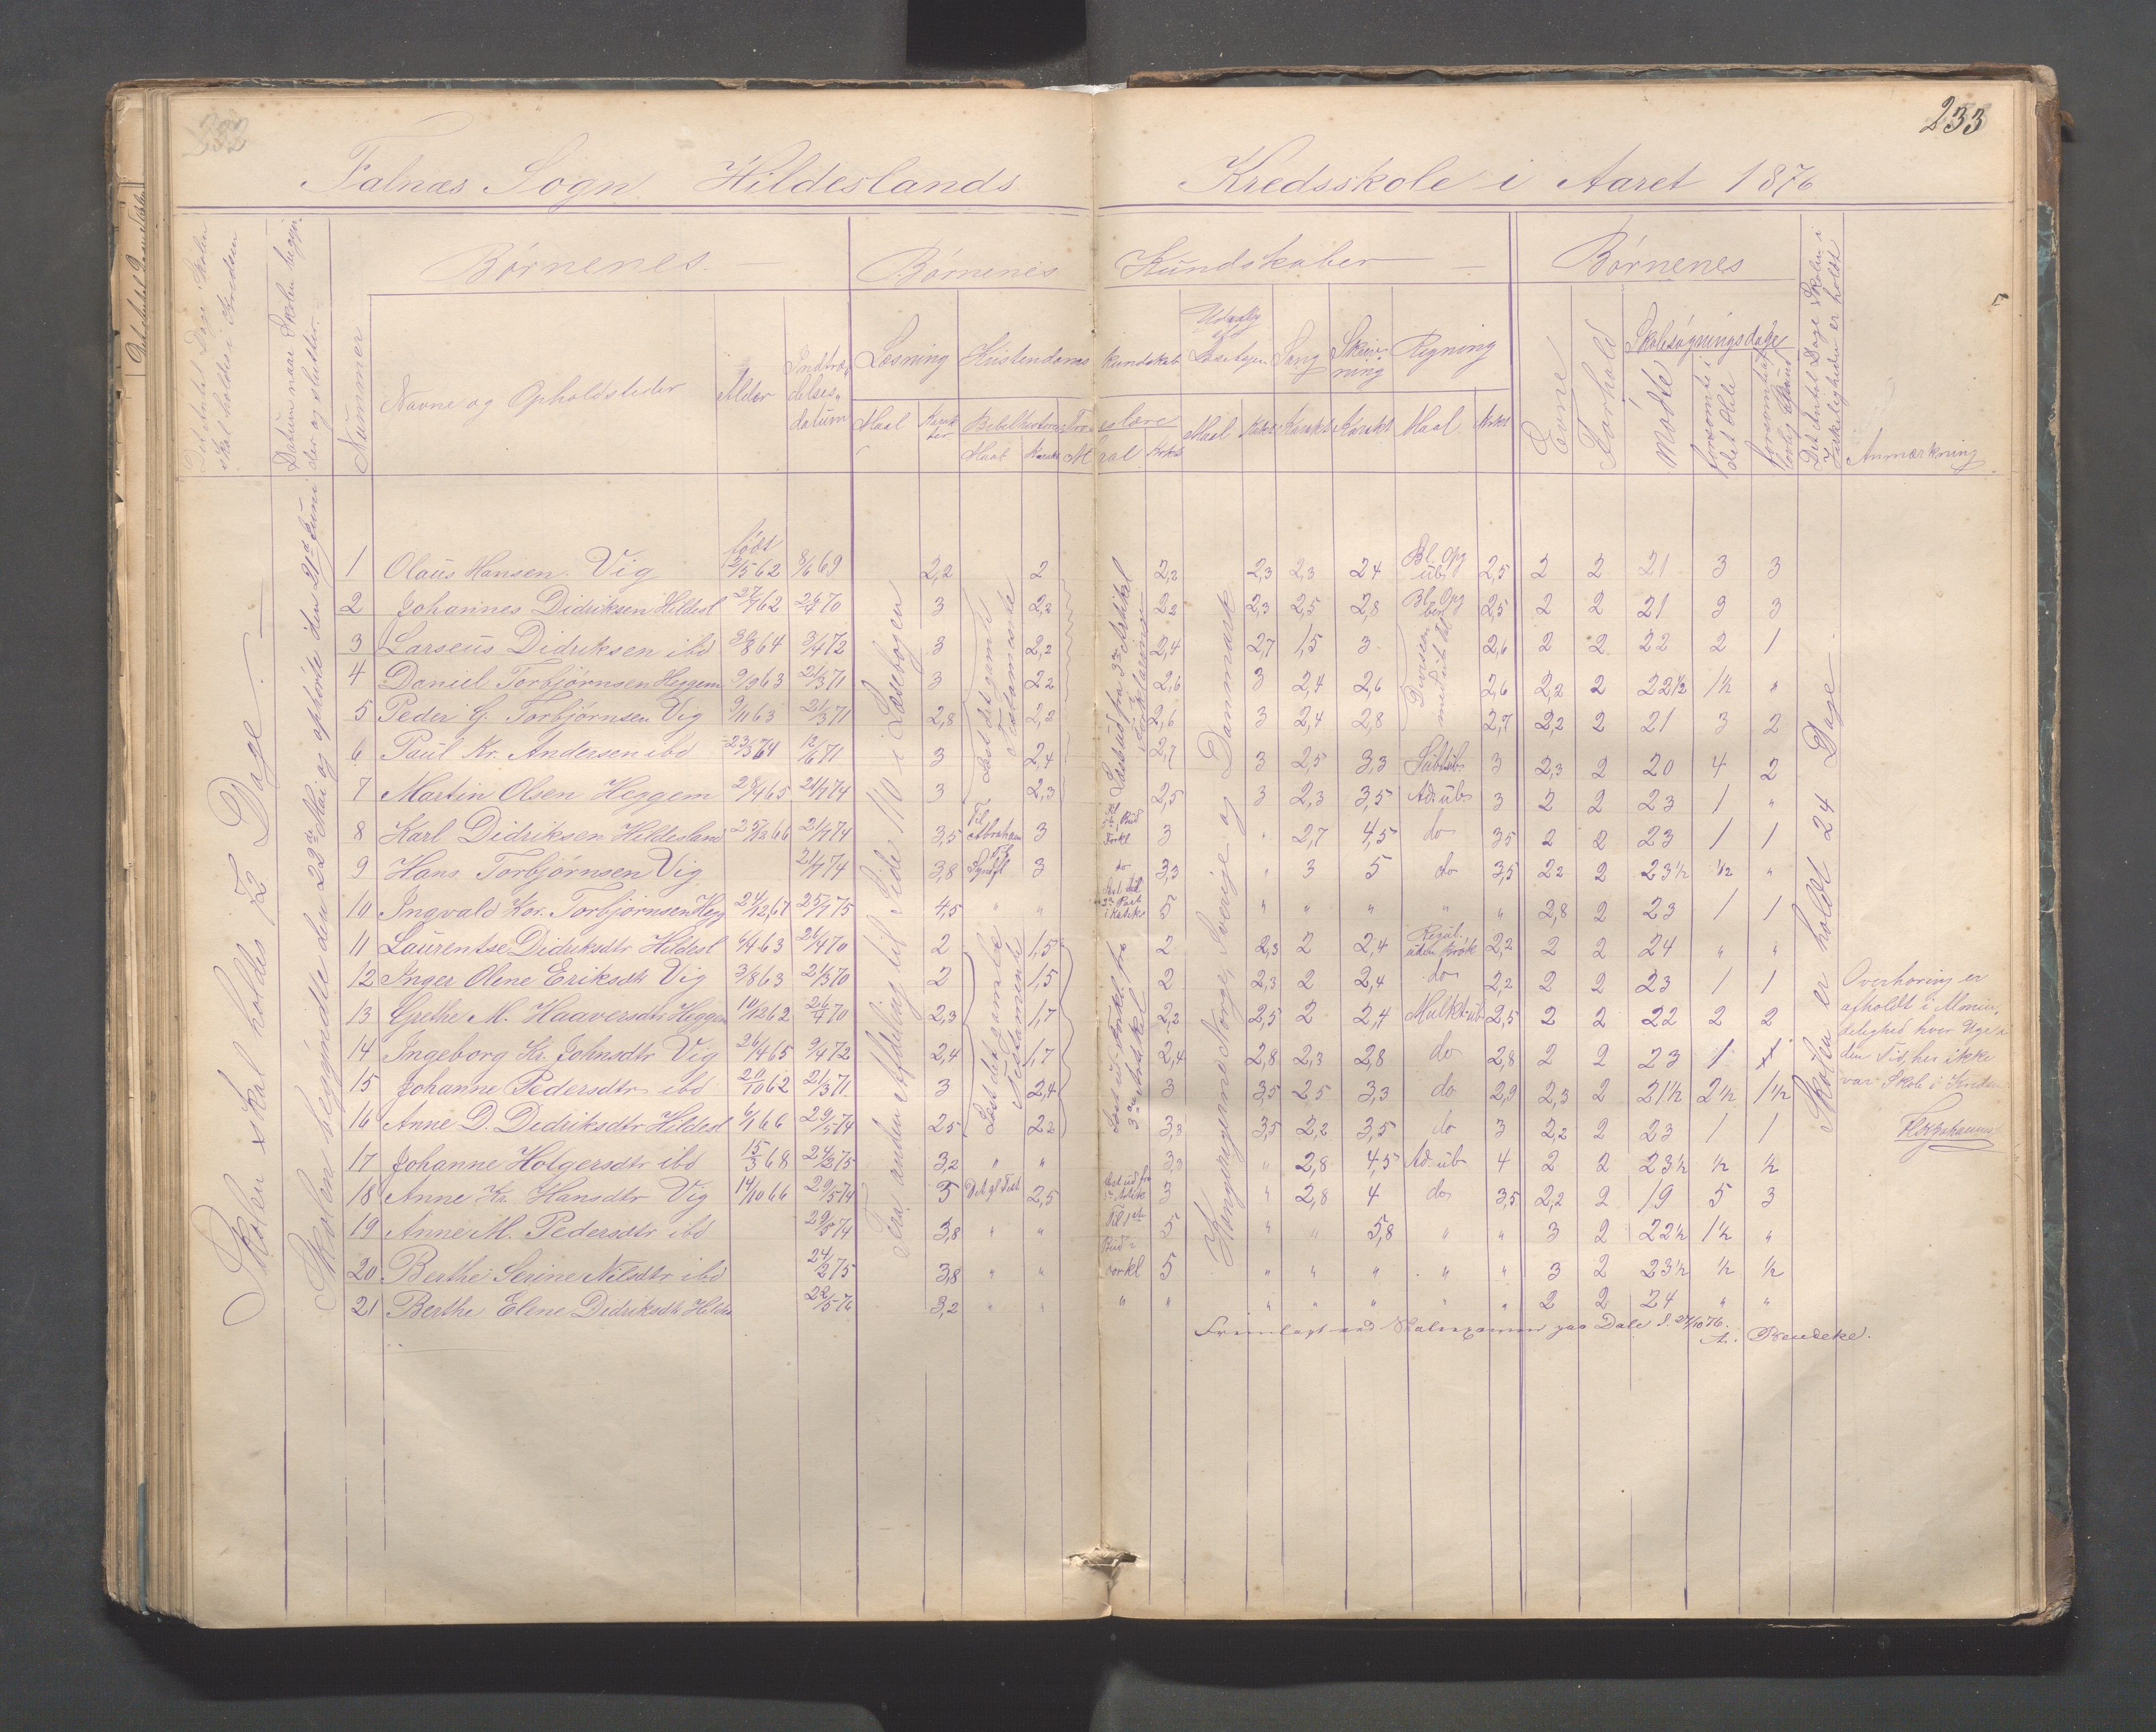 232
233
Falnæs Sogn Hildeslands Kredsskole i Aaret 1876
Det Antal Dage Skolen skal holdes i Kredsen
Datum naar Skolen begynder og slutter
Nummer
Børnenes
Børnenes Kundskaber
Børnenes
Navne og Opholdssteder
Alder
Indtrædelsesdatum
Læsning
Kristendomskundskab
Udvalg af Læsebogen
Sang
Skrivning
Regning
Evne
Forhold
Skolesøgningsdage
Mødte
forsømte i det Hele
Det Antal Dage Skolen i Virkeligheden er holdt
Anmærkning
Maal
Karakter
Bibelhistorie
Troeslære
Maal
Karakt
Maal
Krkt
Maal
Krkt
Karakt
Karakt
Maal
Krkt
Skolen skal holdes 72 Dage
Skolen begyndte den 22de Mai og ophørte den 21de Juni
Fra anden Afdeling til Side 110 i Læsebogen
Læst det gamle Testamente
Læst det gamle Testamente
Kongerigerne Norge, Sverige og Danmark
Skolen er holdt 24 Dage
født
1 Olaus Hansen Vig 12/5 62 8/6 69 2,2 2 2,2 2,3 2,3 2,4 Bl. Opg ub 2,5 2 2 21 3 3
2 Johannes Didriksen Hildesl 27/7 62 26/4 70 3 2,2 2,2 2,3 2,5 2,8 Bl. Opg ben 2,5 2 2 21 3 3
3 Larseus Didriksen ibd 30/8 64 9/4 72 3 2,2 2,4 2,7 1,5 3 Divisen med ub tal 2,6 2 2 22 2 1
4 Daniel Torbjørnsen Heggem 9/9 63 21/3 71 3 2,2 2,6 3 2,4 2,6 2,6 2,2 2 22½ 1½ "
5 Peder G. Torbjørnsen Vig 9/11 63 21/3 71 2,8 2,2 2,6 3 2,4 2,8 2,7 2,2 2 21 3 2
6 Paul Kr. Andersen ibd 23/3 64 12/6 71 3 2,4 2,7 3 2,5 3,3 Subt ub 3 2,3 2 20 4 2
7 Martin Olsen Heggem 28/4 65 21/7 74 3 2,3 2,5 3 2,3 3,5 Ad ub 3 2 2 23 1 "
8 Karl Didriksen Hildesland 25/12 66 21/7 74 3,5 Til Abraham 3 3 " 2,7 4,5 do 3,5 2 2 23 1 1
9 Hans Torbjørnsen Vig 21/7 74 3,8 Til Syndfl 3 do 3,3 " 3 5 do 3,5 2,2 2 23½ ½ "
10 Ingvald Kor. Torbjørnsen Hegg 24/12 67 25/1 75 4,5 " " 5 " " " " " 2,8 2 23 1 1
11 Laurentse Didriksdtr Hildesl 6/4 63 26/4 70 2 1,5 2 2,3 2 2,4 Regul. uden Brøk 2,2 2 2 24 " "
12 Inger Olene Eriksdtr Vig 3/8 63 21/3 70 2 1,5 2 2,3 2 2,4 do 2,2 2 2 23 1 1
13 Grethe M. Haaversdtr Heggem 10/12 62 26/4 70 2,3 1,7 2,2 2,5 2 2,4 Multt ub 2,5 2 2 22 2 2
14 Ingeborg Kr. Johnsdtr Vig 26/4 65 9/4 72 2,4 1,7 2,4 2,8 2,3 2,8 do 2,8 2 2 23 1 1
15 Johanne Pedersdtr ibd 20/10 62 21/3 71 3 2,4 3 3,5 2,5 3,3 do 2,9 2,3 2 21½ 2½ 1½
16 Anne D. Dedriksdtr Hildesl 6/1 66 29/5 74 2,5 2,2 3,3 3,5 2,2 3,5 do 3 2,2 2 23 1 1
17 Johanne Holgersdtr ibd 15/3 68 24/2 75 3,2 " " 3,3 " 2,8 4,5 Ad ub 4 2 2 23½ ½ ½
18 Anne Kr. Hansdtr Vig 14/10 66 29/5 74 3 Det gl Test 2,5 3 " 2,8 4 do 3,5 2,2 2 19 5 3
19 Anne M. Pedersdtr ibd 29/5 74 3,8 " " Til 1ste 5 " " 5,8 " " 3 2 22½ 1½ "
20 Berthe Serine Nilsdtr ibd 24/2 75 3,8 " " Bud i Forkl 5 " " " " " 3 2 23½ ½ ½
21 Berthe Elene Didriksdtr Hildes 22/5 76 3,2 " " " " " " " " 2 2 24 " "
Overhøring er
afholdt i Almin-
delighed hver Uge i
den Tid, her ikke
var Skole i Kredsen
Fremlagt ved Skoleexamen paa Dale d. 27/10 76.
A. Bendeke.